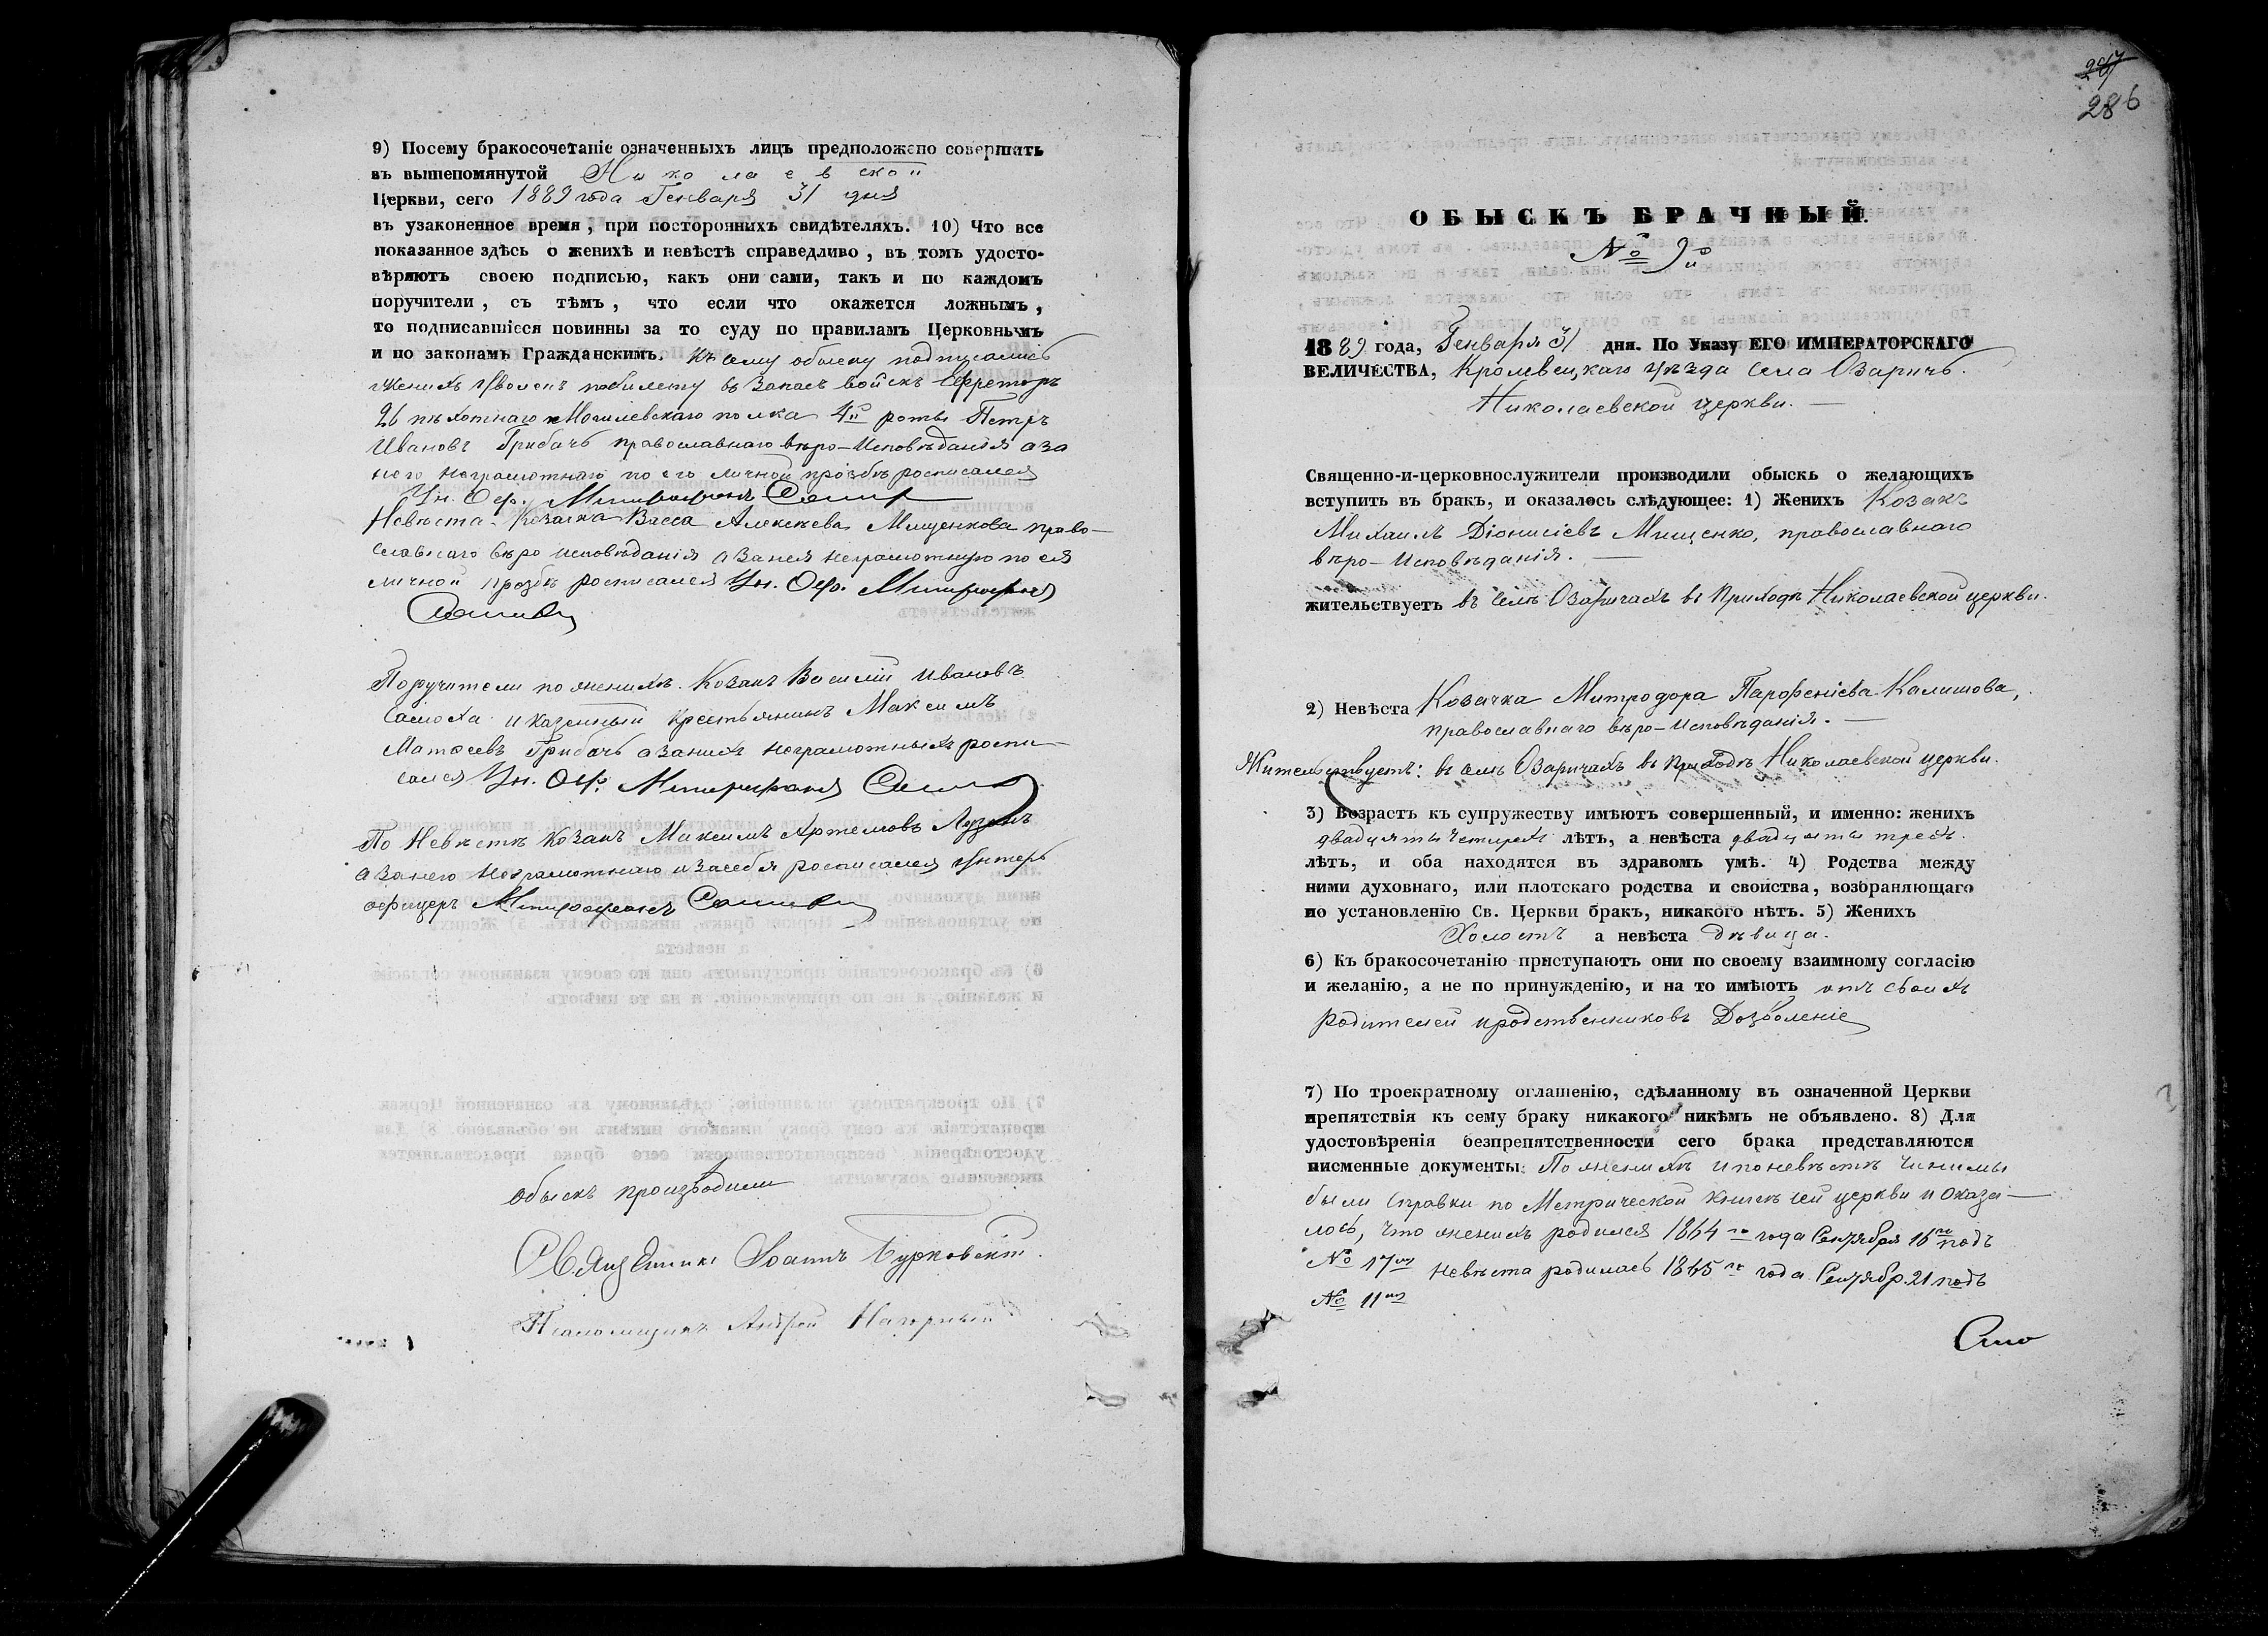 9) Посему бракосочетаніе означенныхъ лицъ предположено совершить
въ вышепомянутой Николаевской
Церкви, сего 1889 года Генваря 31 дня
въ узаконенное время, при постороннихъ свидѣтеляхъ. 10) Что все
показанное здѣсь о женихѣ и невѣстѣ справедливо, въ томъ удосто-
вѣряютъ своею подписью, какъ они сами, такъ и по каждомъ
поручители, съ тѣмъ, что если что окажется ложнымъ,
то подписавшіеся повинны за то суду по правиламъ Церковнымъ
и по законамъ Гражданскимъ. Къ сему обыску подписались
Женихъ Уволенъ по билету въ Запасъ войскъ Ефрейторъ
26 пѣхотнаго Могилевскаго полка 4й роты Петръ
Ивановъ Грибачъ православнаго вѣро-Исповѣданія а за
него неграмотнаго по его личной прозбѣ росписался
Ун. Оф. Митрофанъ
Невѣста Козачка Васса Алексѣева Мищенкова право-
славнаго вѣро исповѣданія а за нея неграмотную по ея
личной прозбѣ росписался Ун. Оф. Митрофанъ
Поручители по женихѣ. Козакъ Василій Ивановъ
Самоха и казенный крестьянинъ Максимъ
Матѳеевъ Грибачъ а за нихъ неграмотныхъ роспи-
сался Ун. Оф. Митрофанъ
По Невѣстѣ Козакъ Максимъ Артемовъ Лузанъ
а за него неграмотнаго и за себя росписался Унтеръ
офицеръ Митрофанъ
Обыскъ производили
Священникъ Іоаннъ Бурковскій.
Псаломщикъ Андрей Нагорный
267
286
ОБЫСКЪ БРАЧНЫЙ.
№ 9й
1889 года, Генваря 31 дня. По Указу ЕГО ИМПЕРАТОРСКАГО
ВЕЛИЧЕСТВА, Кролевецкаго уѣзда села Озаричъ.
Николаевской церкви.
Священно-и-церковнослужители производили обыскъ о желающихъ
вступить въ бракъ, и оказалось слѣдующее: 1) Женихъ Козакъ
Михаилъ Діонисіевъ Мищенко, православнаго
вѣро-Исповѣданія.
жительствуетъ въ селѣ Озаричахъ въ Приходѣ Николаевской церкви.
2) Невѣста Козачка Митродора Парфеніева Калишова,
православнаго вѣро-исповѣданія.
Жительствуетъ: въ селѣ Озаричахъ въ Приходѣ Николаевской церкви.
3) Возрастъ къ супружеству имѣютъ совершенный, и именно: женихъ
двадцяты четырех лѣтъ, а невѣста двадцяты трех.
лѣтъ, и оба находятся въ здравомъ умѣ. 4) Родства между
ними духовнаго, или плотскаго родства и свойства, возбраняющаго
по установленію Св. Церкви бракъ, никакого нѣтъ. 5) Женихъ
Холостъ а невѣста дѣвица.
6) Къ бракосочетанію приступаютъ они по своему взаимному согласію
и желанію, а не по принужденію, и на то имѣютъ отъ своихъ
родителей и родственниковъ Дозволеніе
7) По троекратному оглашенію, сдѣланному въ означенной Церкви
препятствія къ сему браку никакого никѣмъ не объявлено. 8) Для
удостовѣренія безпрепятственности сего брака представляются
писменные документы: По женихѣ и по невѣстѣ чинимы
были справки по Метрической книгѣ сей церкви и оказа-
лось, что женихъ родился 1864го года Сентября 16го подъ
№ 17мъ невѣста родилась 1865го года Сентябр. 21 подъ
№ 11мъ